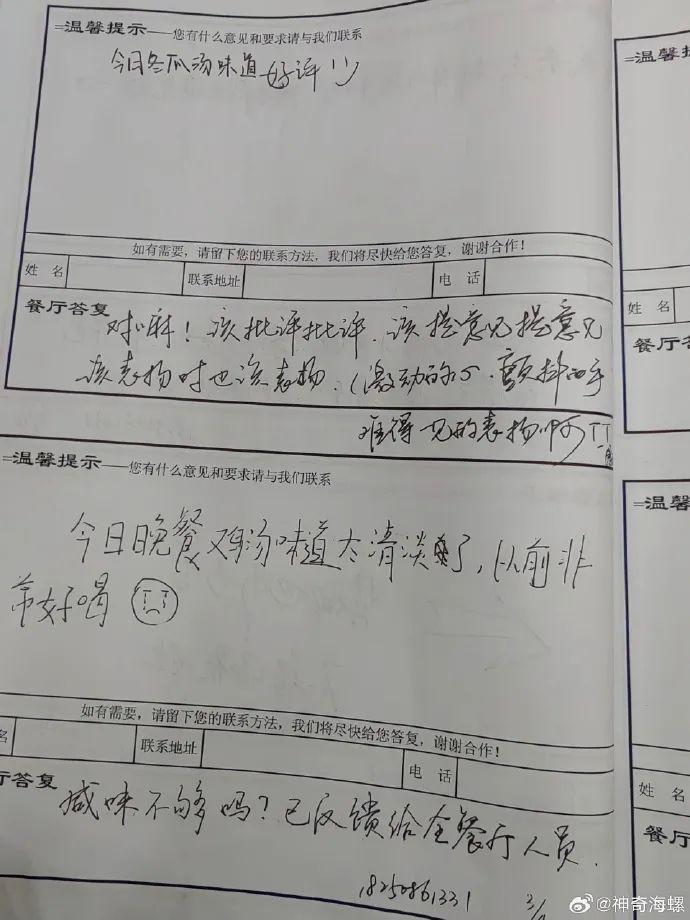 =温馨提示——您有什么意见和要求请与我们联系
今日冬瓜汤味道好评!!)
如有需要，请留下您的联系方法，我们将尽快给您答复，谢谢合作！
姓 名 联系地址 电 话
餐厅答复
对嘛！该批评批评.该提意见提意见
该表扬时也该表扬.(激动的心.颤抖的手
难得一见的表扬啊TT
=温馨提示——您有什么意见和要求请与我们联系
今日晚餐鸡汤味道太清淡了，从前非
常好喝
如有需要，请留下您的联系方法，我们将尽快给您答复，谢谢合作！
名 联系地址 电 话
厅答复
咸味不够吗？已反馈给全餐厅人员.
18250861331
=温馨提
姓 名
餐厅答
=温馨
姓 名
餐厅
@神奇海螺